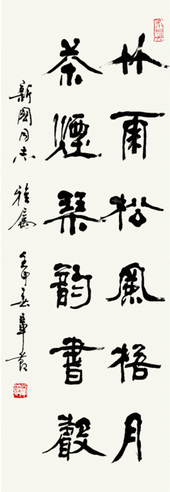 竹雨松風梧月
茶煙琴韵書聲
新國同志 雅属
壬申春章